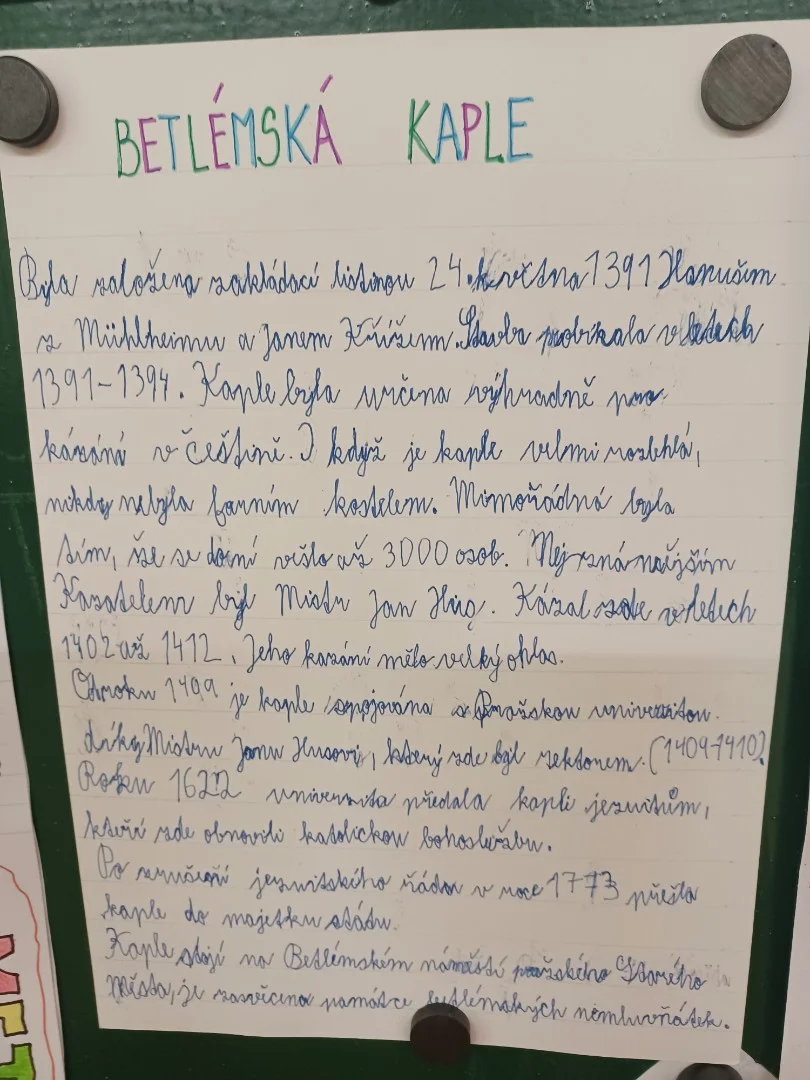 BETLÉMSKÁ KAPLE
Byla založena zakládací listinou 24. května 1391 Hanušem
z Mühlheimu a Janem Křížem. Stavba probíhala v letech
1391-1394. Kaple byla určena výhradně pro
kázání v češtině. I když je kaple velmi rozlehlá,
nikdy nebyla farním kostelem. Mimořádná byla
tím, že se do ní vešlo až 3000 osob. Nejznámějším
Kazatelem byl Mistr Jan Hus. Kázal zde v letech
1402 až 1412. Jeho kazání mělo velký ohlas.
Od roku 1499 je kaple spojována s Pražskou univerzitou
díky Mistru Janu Husovi, který zde byl rektorem. (1409-1410).
Roku 1622 univerzita předala kapli jezuitům,
kteří zde obnovili katolickou bohoslužbu.
Po zrušení jezuitského řádu v roce 1773 přešla
kaple do majetku státu.
Kaple stojí na Betlémském náměstí pražského Starého
Města, je zasvěcena památce betlémských nemluvňátek.